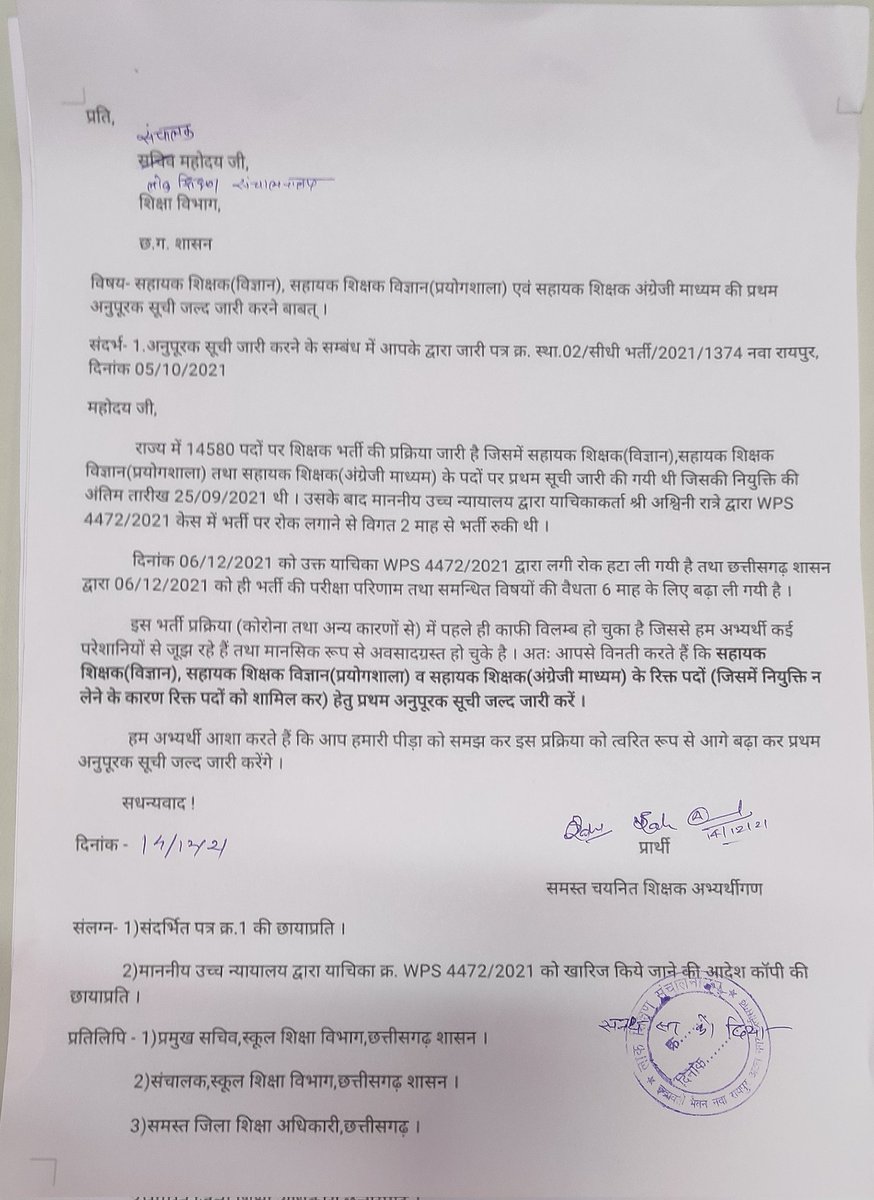 प्रति,
संचालक
सचिव महोदय जी,
लोक शिक्षण संचालनालय
शिक्षा विभाग,
छ.ग. शासन
विषय- सहायक शिक्षक(विज्ञान), सहायक शिक्षक विज्ञान(प्रयोगशाला) एवं सहायक शिक्षक अंग्रेजी माध्यम की प्रथम
अनुपूरक सूची जल्द जारी करने बाबत् ।
संदर्भ- 1.अनुपूरक सूची जारी करने के सम्बंध में आपके द्वारा जारी पत्र क्र. स्था.02/सीधी भर्ती/2021/1374 नवा रायपुर,
दिनांक 05/10/2021
महोदय जी,
राज्य में 14580 पदों पर शिक्षक भर्ती की प्रक्रिया जारी है जिसमें सहायक शिक्षक(विज्ञान),सहायक शिक्षक
विज्ञान(प्रयोगशाला) तथा सहायक शिक्षक(अंग्रेजी माध्यम) के पदों पर प्रथम सूची जारी की गयी थी जिसकी नियुक्ति की
अंतिम तारीख 25/09/2021 थी । उसके बाद माननीय उच्च न्यायालय द्वारा याचिकाकर्ता श्री अश्विनी रात्रे द्वारा WPS
4472/2021 केस में भर्ती पर रोक लगाने से विगत 2 माह से भर्ती रुकी थी ।
दिनांक 06/12/2021 को उक्त याचिका WPS 4472/2021 द्वारा लगी रोक हटा ली गयी है तथा छत्तीसगढ़ शासन
द्वारा 06/12/2021 को ही भर्ती की परीक्षा परिणाम तथा समन्धित विषयों की वैधता 6 माह के लिए बढ़ा ली गयी है ।
इस भर्ती प्रक्रिया (कोरोना तथा अन्य कारणों से) में पहले ही काफी विलम्ब हो चुका है जिससे हम अभ्यर्थी कई
परेशानियों से जूझ रहे हैं तथा मानसिक रूप से अवसादग्रस्त हो चुके है । अतः आपसे विनती करते हैं कि सहायक
शिक्षक(विज्ञान), सहायक शिक्षक विज्ञान(प्रयोगशाला) व सहायक शिक्षक(अंग्रेजी माध्यम) के रिक्त पदों (जिसमें नियुक्ति न
लेने के कारण रिक्त पदों को शामिल कर) हेतु प्रथम अनुपूरक सूची जल्द जारी करें ।
हम अभ्यर्थी आशा करते हैं कि आप हमारी पीड़ा को समझ कर इस प्रक्रिया को त्वरित रूप से आगे बढ़ा कर प्रथम
अनुपूरक सूची जल्द जारी करेंगे ।
सधन्यवाद !
14/12/21
दिनांक - 14/12/21
प्रार्थी
समस्त चयनित शिक्षक अभ्यर्थीगण
संलग्न- 1)संदर्भित पत्र क्र.1 की छायाप्रति ।
2)माननीय उच्च न्यायालय द्वारा याचिका क्र. WPS 4472/2021 को खारिज किये जाने की आदेश कॉपी की
छायाप्रति ।
प्रतिलिपि - 1)प्रमुख सचिव,स्कूल शिक्षा विभाग,छत्तीसगढ़ शासन ।
2)संचालक,स्कूल शिक्षा विभाग,छत्तीसगढ़ शासन ।
3)समस्त जिला शिक्षा अधिकारी,छत्तीसगढ़ ।
लोक शिक्षण संचालनालय
क्र.....
दिनांक.......